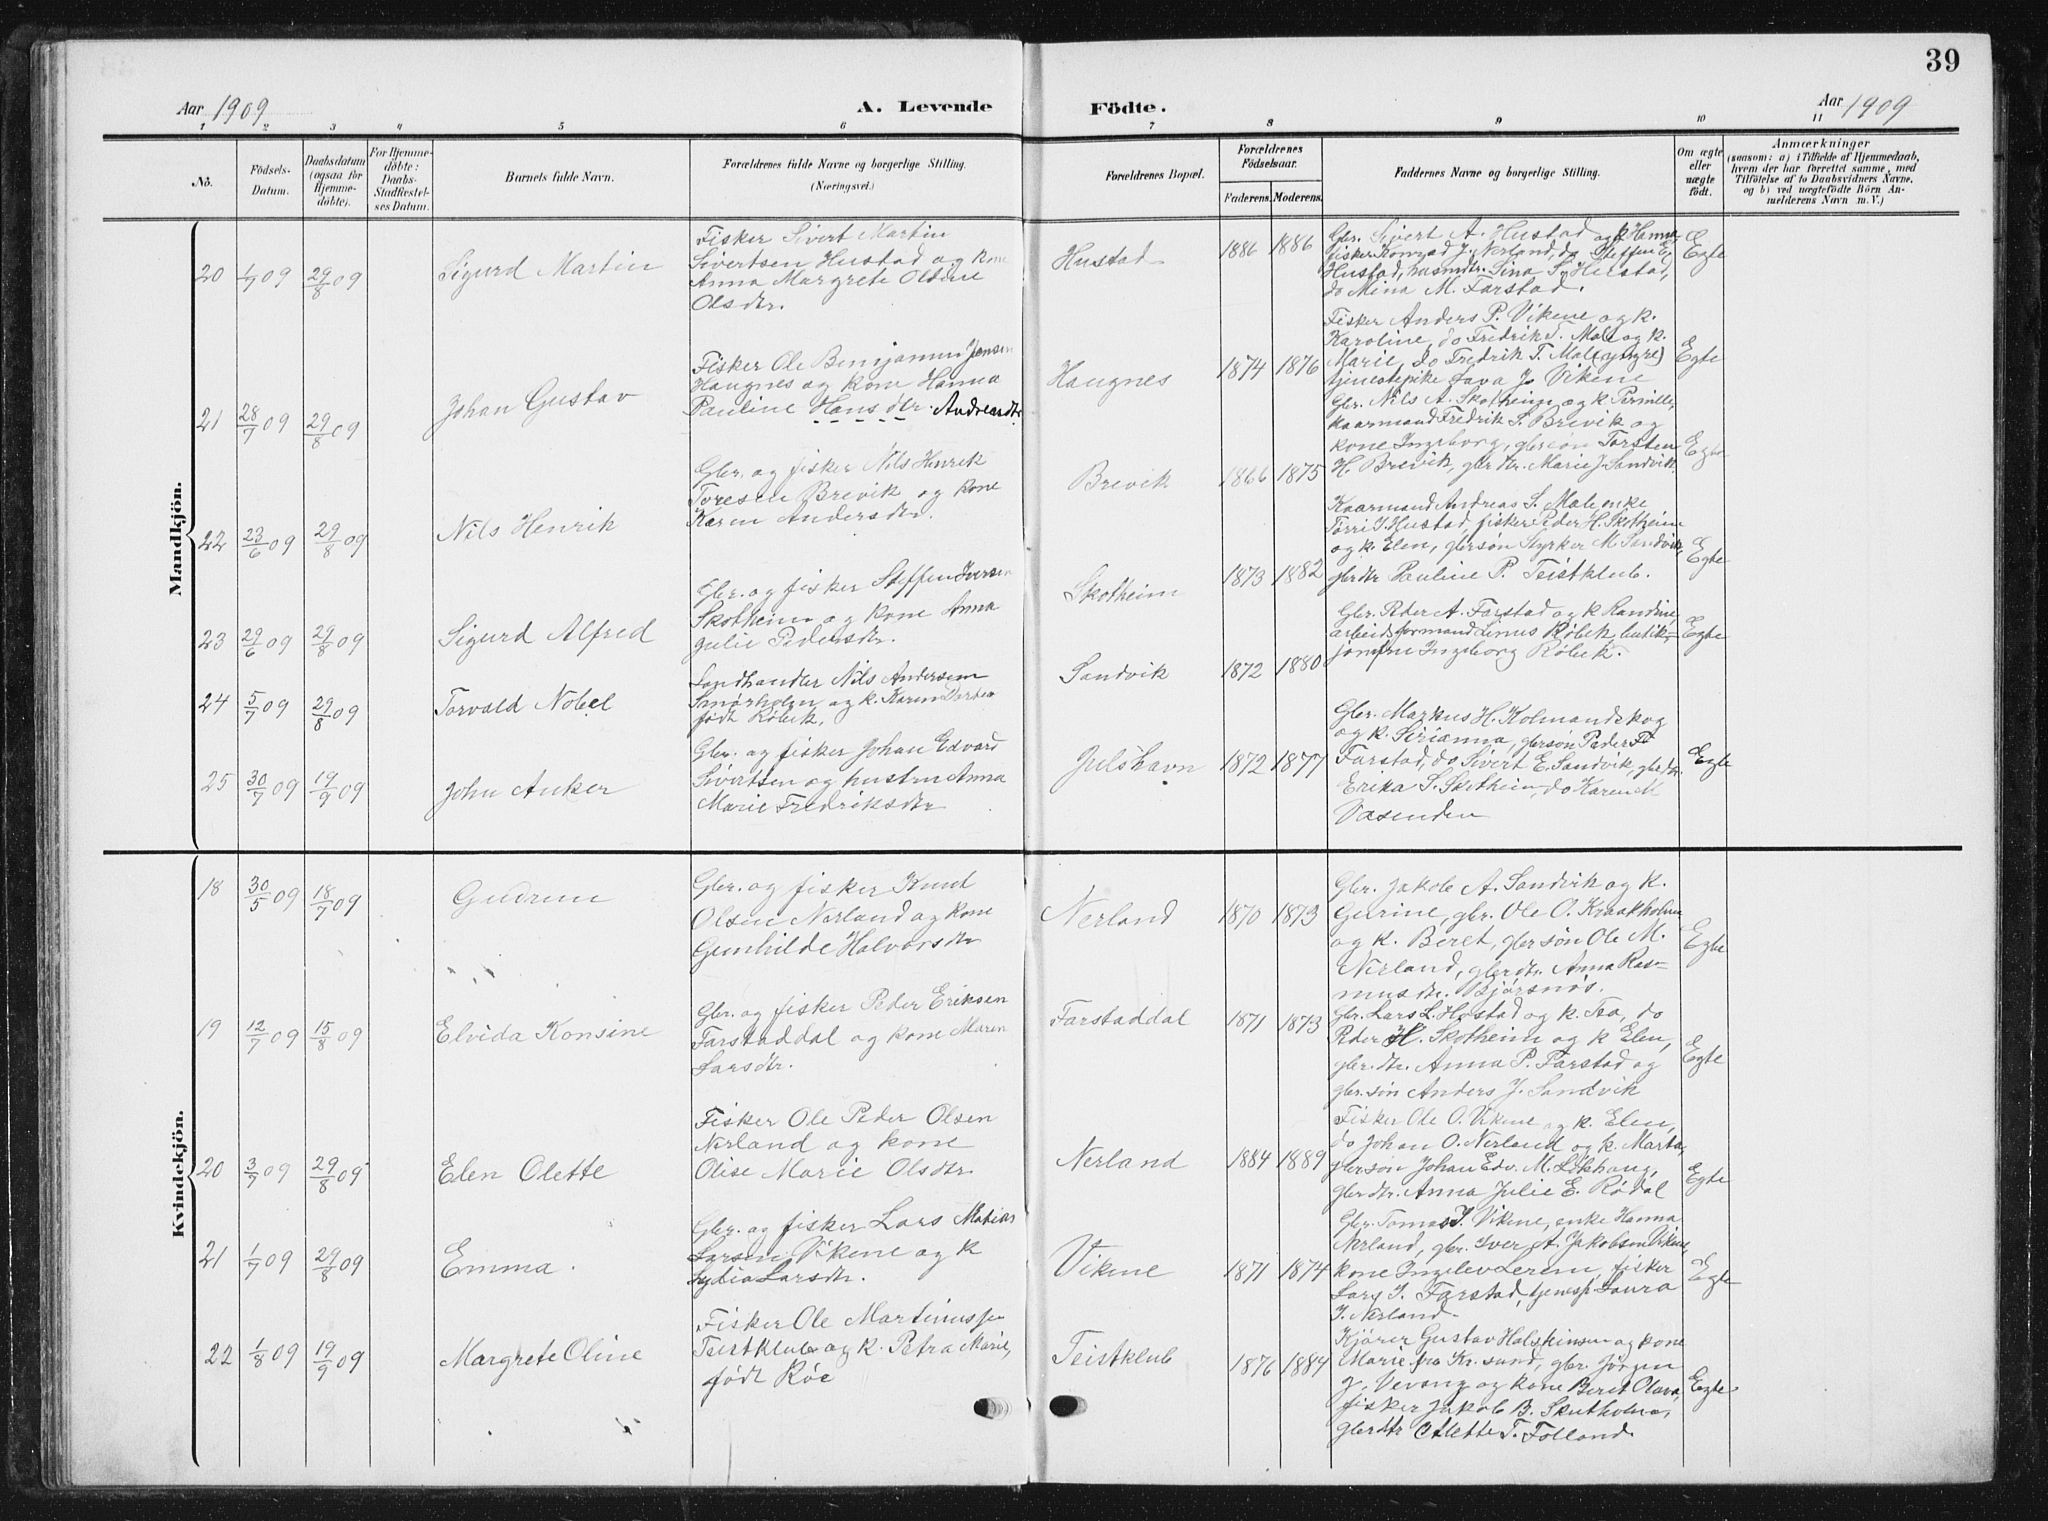 39
Aar 1909
A. Levende Födte.
Aar 1909
1 2 3 4 5 6 7 8 9 10 11
No.
Födsels-Datum.
Daabsdatum (ogsaa for Hjemme-döbte).
For Hjemme-döbte: Daabs-Stadfæstel-ses Datum.
Barnets fulde Navn.
Forældrenes fulde Navne og borgerlige Stilling. (Næringsvei.)
Forældrenes Bopæl.
Forældrenes Födselsaar.
Faderens. Moderens.
Faddernes Navne og borgerlige Stilling.
Om ægte eller uægte födt.
Anmærkninger
(saasom: a) i Tilfælde af Hjemmedaab,
hvem der har forrettet samme, med
Tilföielse af to Daabsvidners Navne,
og b) ved uægtefödte Börn An-
melderens Navn m. V.)
Mandkjön.
20 1/7 09 29/8 09 Sigurd Martin
Fisker Sivert Martin
Sivertsen Hustad og kone
Anna Margrete Olsine
Olsdtr.
Hustad 1886 1886
Gbr. Sivert A. Hustad og k. Hanna,
fisker Konrad J. Nerland, do Steffen E.
Hustad, husmdtr. Sina S. Hustad,
do Mina M. Farstad.
Egte
21 28/7 09 29/8 09 Johan Gustav
Fisker Ole Benjamin Jensen
Haugnes og kone Hanna
Pauline Hansdtr. Andreasdtr.
Haugnes 1874 1876
Fisker Anders P. Vikene og k.
Karoline, do Fredrik T. Male og k.
Marie, do Fredrik T. Male (yngre)
tjenestepike Lava J. Vikene
Egte
22 23/6 09 29/8 09 Nils Henrik
Gbr. og fisker Nils Henrik
Toresen Brevik og kone
Karen Andersdtr.
Brevik 1866 1875
Gbr. Nils A. Skotheim og k. Pernille,
kaarmand Fredrik S. Brevik og
kone Ingeborg, gbrsøn Torsten
H. Brevik, gbrdtr. Marie J. Sandvik
Egte
23 29/6 09 29/8 09 Sigurd Alfred
Gbr. og fisker Steffen Iversen
Skotheim og kone Anna
Julie Pedersdtr.
Skotheim 1873 1882
Kaarmand Andreas S. Male, enke
Torri J. Hustad, fisker Peder H. Skotheim
og k. Elen, gbrsøn Styrker M. Sandvik,
gbrdtr Pauline P. Teistklub.
Egte
24 5/7 09 29/8 09 Torvald Nobel
Landhandler Nils Andersen
og k. Karen Dortea
født Røbek.
Sandvik 1872 1880
Gbr. Peder A. Farstad og k. Randine,
arbeidsformand Linus Røbek, butik-
jomfru Ingeborg Røbek.
Egte
25 30/7 09 19/9 09 John Anker
Gbr. og fisker Johan Edvard
Sivertsen og hustru Anna
Marie Fredriksdtr
Julshavn 1872 1877
Gbr. Markus H. Kolmandskog
og k. Sirianna, gbrsøn Peder
Farstad, do Sivert E. Sandvik, gbrdtr.
Erika S. Skotheim, do Karen M
Vasenden
Egte
Kvindekjön.
18 30/5 09 18/7 09 Gudrun
Gbr. og fisker Knut
Olsen Nerland og kone
Gunhilde Halvorsdtr
Nerland 1870 1873
Gbr. Jakob A. Sandvik og k.
Gurine, gbr. Ole O. Kraakholm
og k. Beret, gbrsøn Ole M.
Nerland, gbrdtr. Anna Ras-
musdtr. Bjørsnøs.
Egte
19 12/7 09 15/8 09 Elvida Konsine
Gbr. og fisker Peder Eriksen
Farstaddal og kone Maren
Larsdtr.
Farstaddal 1871 1873
Gbr. Lars L. Hostad og k. Tea, do
Peder H. Skotheim og k Elen,
gbr.dtr. Anna P. Farstad og
gbr.søn Anders J. Sandvik
Egte
20 3/7 09 29/8 09 Elen Olette
Fisker Ole Peder Olsen
Nerland og kone
Olise Marie Olsdtr
Nerland 1884 1889
Fisker Ole O. Vikene og k. Elen,
do Johan O. Nerland og k. Marta,
gbrsøn Johan Edv. M. Løkhaug,
gbrdtr. Anna Julie E. Rødal
Egte
21 1/7 09 29/8 09 Emma.
Gbr. og fisker Lars Matias
Larsen Vikene og k
Lydia Larsdtr.
Vikene 1871 1874
Gbr. Tomas J. Vikene, enke Hanna
Nerland, gbr. Iver A. Jakobsen Vikene,
kone Ingelev Lerem, fisker
Lars J. Farstad, tjenesp. Laura
J. Nerland.
Egte
22 1/8 09 19/9 09 Margrete Oline
Fisker Ole Martinussen
Teistklub og k. Petra Marie,
født Røe
Teistklub 1876 1884
Kjører Gustav Halsteinsen og kone
Marie fra Kr.sund, gbr. Jørgen
J. Vevang og kone Beret Olava,
fisker Jakob B. Skutholm,
gbrdtr Olette T. Folland.
Egte